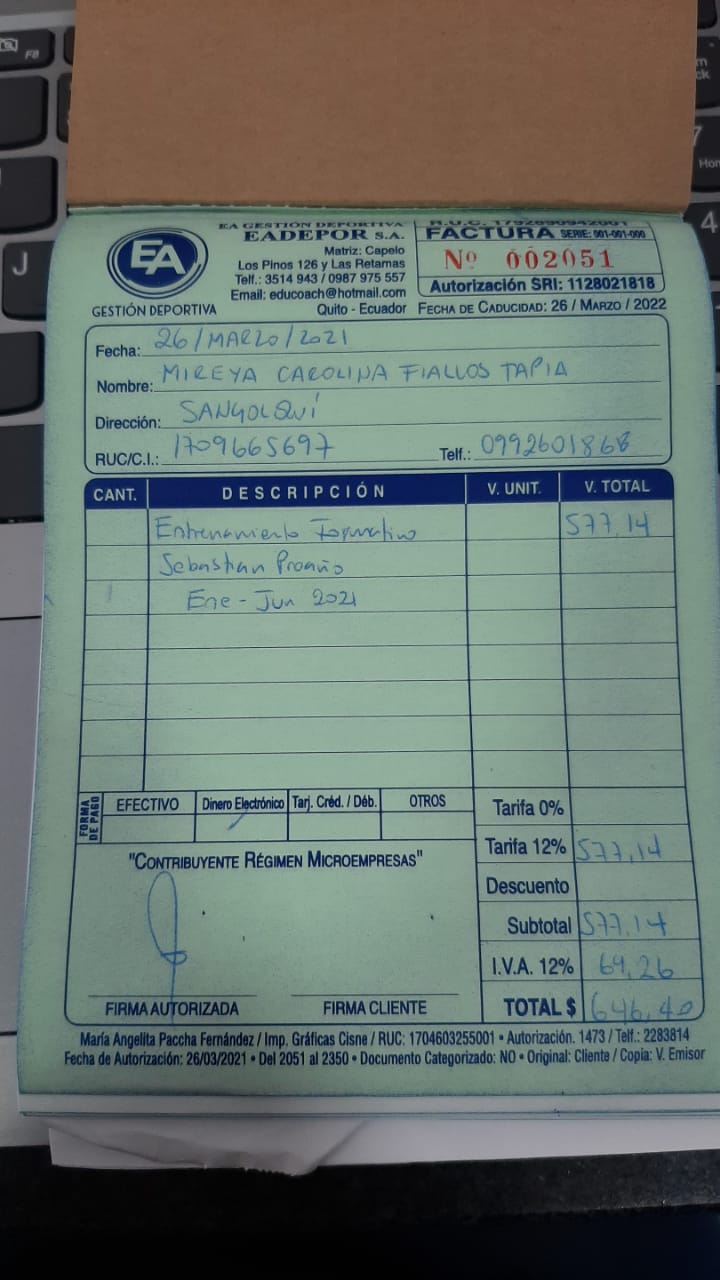 EA GESTIÓN DEPORTIVA
EADEPOR S.A.
Matriz: Capelo
Los Pinos 126 y Las Retamas
Telf.: 3514 943 / 0987 975 557
Email: educoach@hotmail.com
Quito - Ecuador
EA
GESTIÓN DEPORTIVA
R.U.C. 1792890942001
FACTURA SERIE: 001-001-000
Nº 002051
Autorización SRI: 1128021818
FECHA DE CADUCIDAD: 26 / MARZO / 2022
Fecha: 26/MARZO/2021
Nombre: MIREYA CAROLINA FIALLOS TAPIA
Dirección: SANGOLQUÍ
RUC/C.I.: 1709665697 Telf.: 0992601868
CANT. DESCRIPCIÓN V. UNIT. V. TOTAL
Entrenamiento Formativo 577,14
Sebastian Proaño
1 Ene - Jun 2021
FORMA DE PAGO
EFECTIVO Dinero Electrónico Tarj. Créd. / Déb. OTROS
Tarifa 0%
Tarifa 12% 577,14
Descuento
Subtotal 577,14
I.V.A. 12% 69,26
TOTAL $ 646,40
"CONTRIBUYENTE RÉGIMEN MICROEMPRESAS"
FIRMA AUTORIZADA FIRMA CLIENTE
María Angelita Paccha Fernández / Imp. Gráficas Cisne / RUC: 1704603255001 • Autorización. 1473 / Telf.: 2283814
Fecha de Autorización: 26/03/2021 • Del 2051 al 2350 • Documento Categorizado: NO • Original: Cliente / Copia: V. Emisor